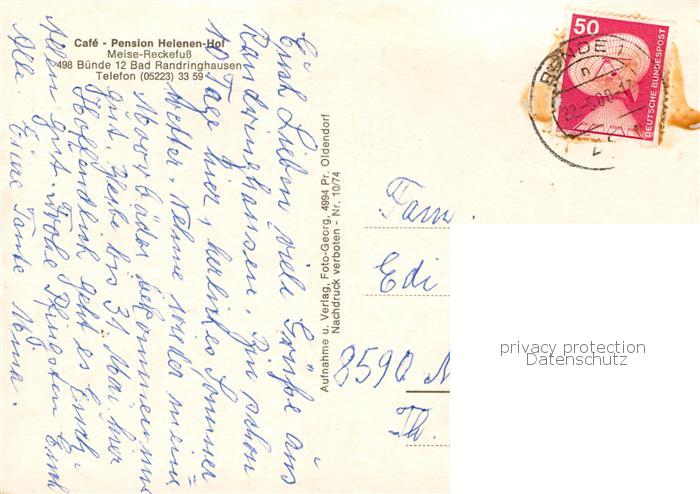 Café - Pension Helenen-Hof
Meise-Reckefuß
498 Bünde 12 Bad Randringhausen
Telefon (05223) 33 59
Euch Lieben viele Grüße aus
Randringhausen. Bin schon
10 Tage hier, herliches Sommer
Wetter. Nehme wieder meine
Moorbäder bekommen mir
gut. Bleibe bis 31. Mai hier
Hoffendlich geht es Euch
Allen gut. Frohe Pfingsten Euch
Alle. Eure Tante Mina.
Aufnahme u. Verlag, Foto-Georg, 4994 Pr. Oldendorf
Nachdruck verboten - Nr. 10/74
50
DEUTSCHE BUNDESPOST
BÜNDE 1
Fam.
Edi
8590
Th.
privacy protection
Datenschutz